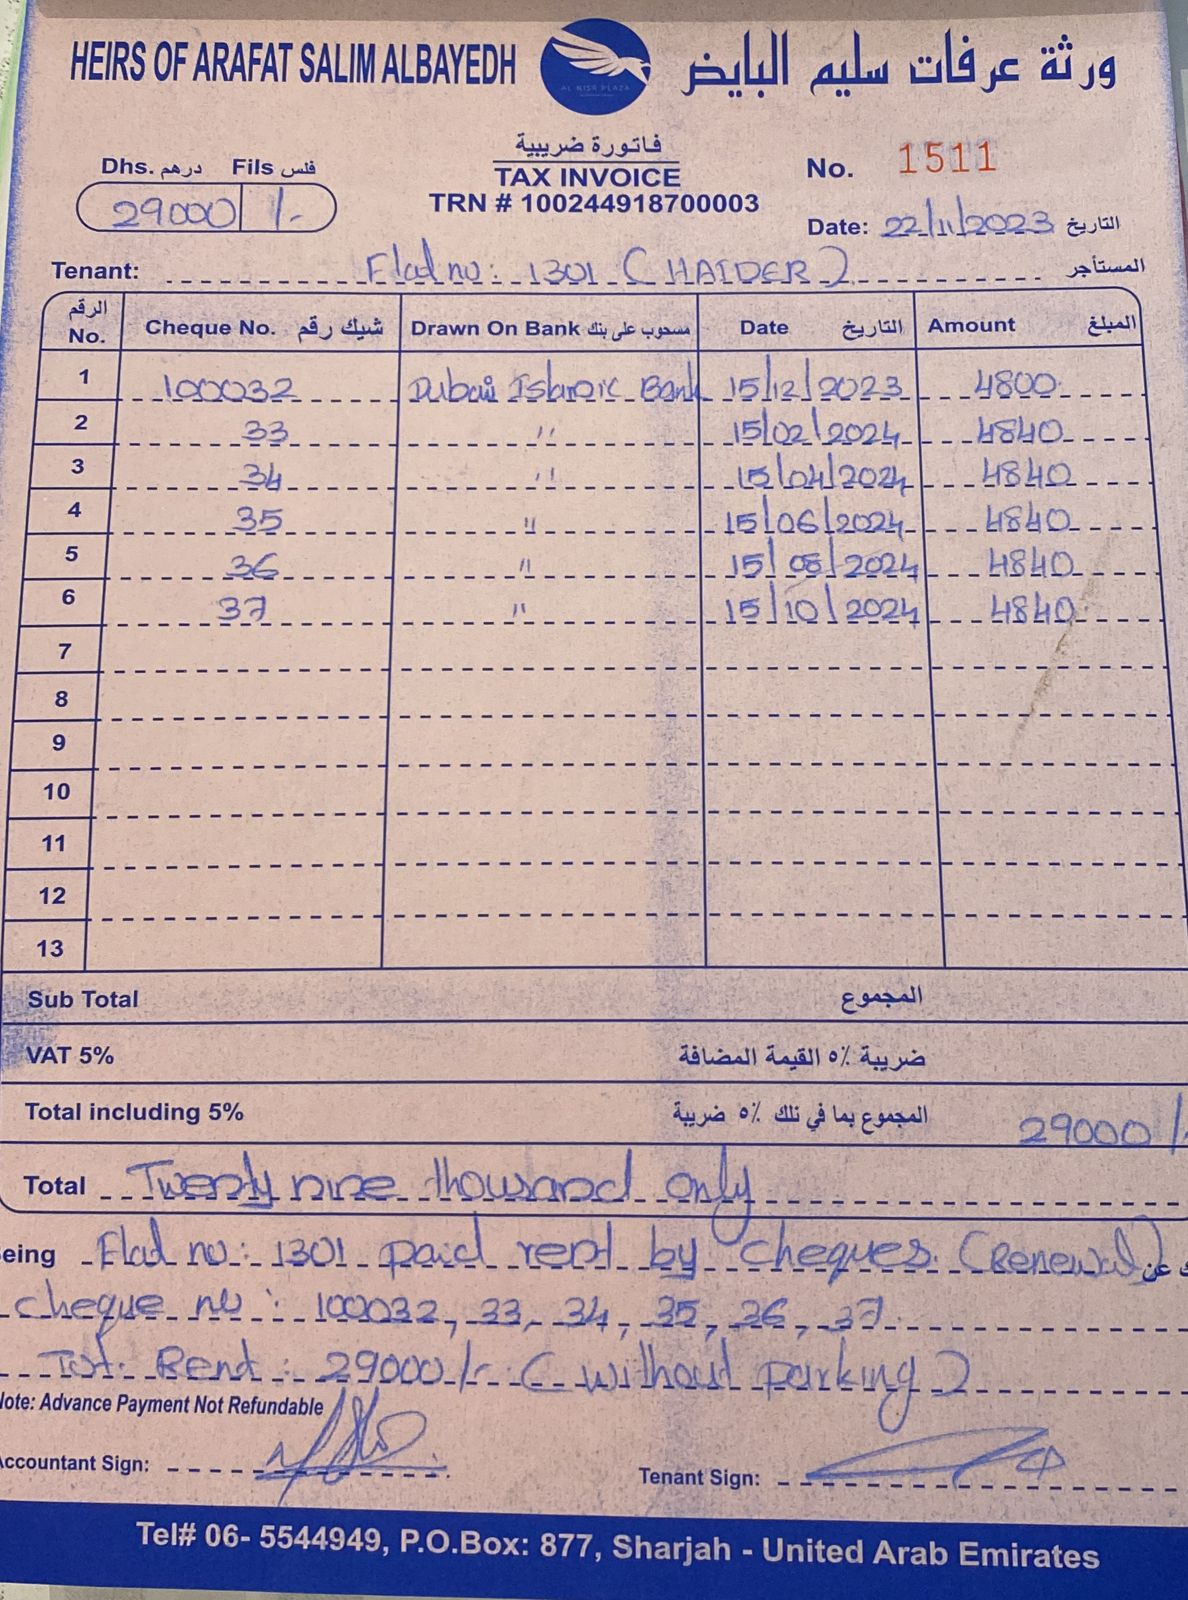 HEIRS OF ARAFAT SALIM ALBAYEDH ورثة عرفات سليم البايض
AL NISR PLAZA
فاتورة ضريبية
TAX INVOICE
TRN # 100244918700003
Dhs. درهم Fils فلس
29000 /-
No. 1511
Date: 22/11/2023 التاريخ
Tenant: Flat no: 1301 (HAIDER) المستأجر
الرقم No. Cheque No. شيك رقم Drawn On Bank مسحوب على بنك Date التاريخ Amount المبلغ
1 100032 Dubai Islamic Bank 15/12/2023 4800
2 33 " 15/02/2024 4840
3 34 " 15/04/2024 4840
4 35 " 15/06/2024 4840
5 36 " 15/08/2024 4840
6 37 " 15/10/2024 4840
7
8
9
10
11
12
13
Sub Total المجموع
VAT 5% ضريبة ٥٪ القيمة المضافة
Total including 5% المجموع بما في تلك ٥٪ ضريبة 29000/-
Total Twenty nine thousand only
eing Flat no: 1301 paid rent by cheques. (Renewal) ك عن
cheque no: 100032, 33, 34, 35, 36, 37
Tot. Rent: 29000/- (without parking)
Note: Advance Payment Not Refundable
Accountant Sign:
Tenant Sign:
Tel# 06- 5544949, P.O.Box: 877, Sharjah - United Arab Emirates